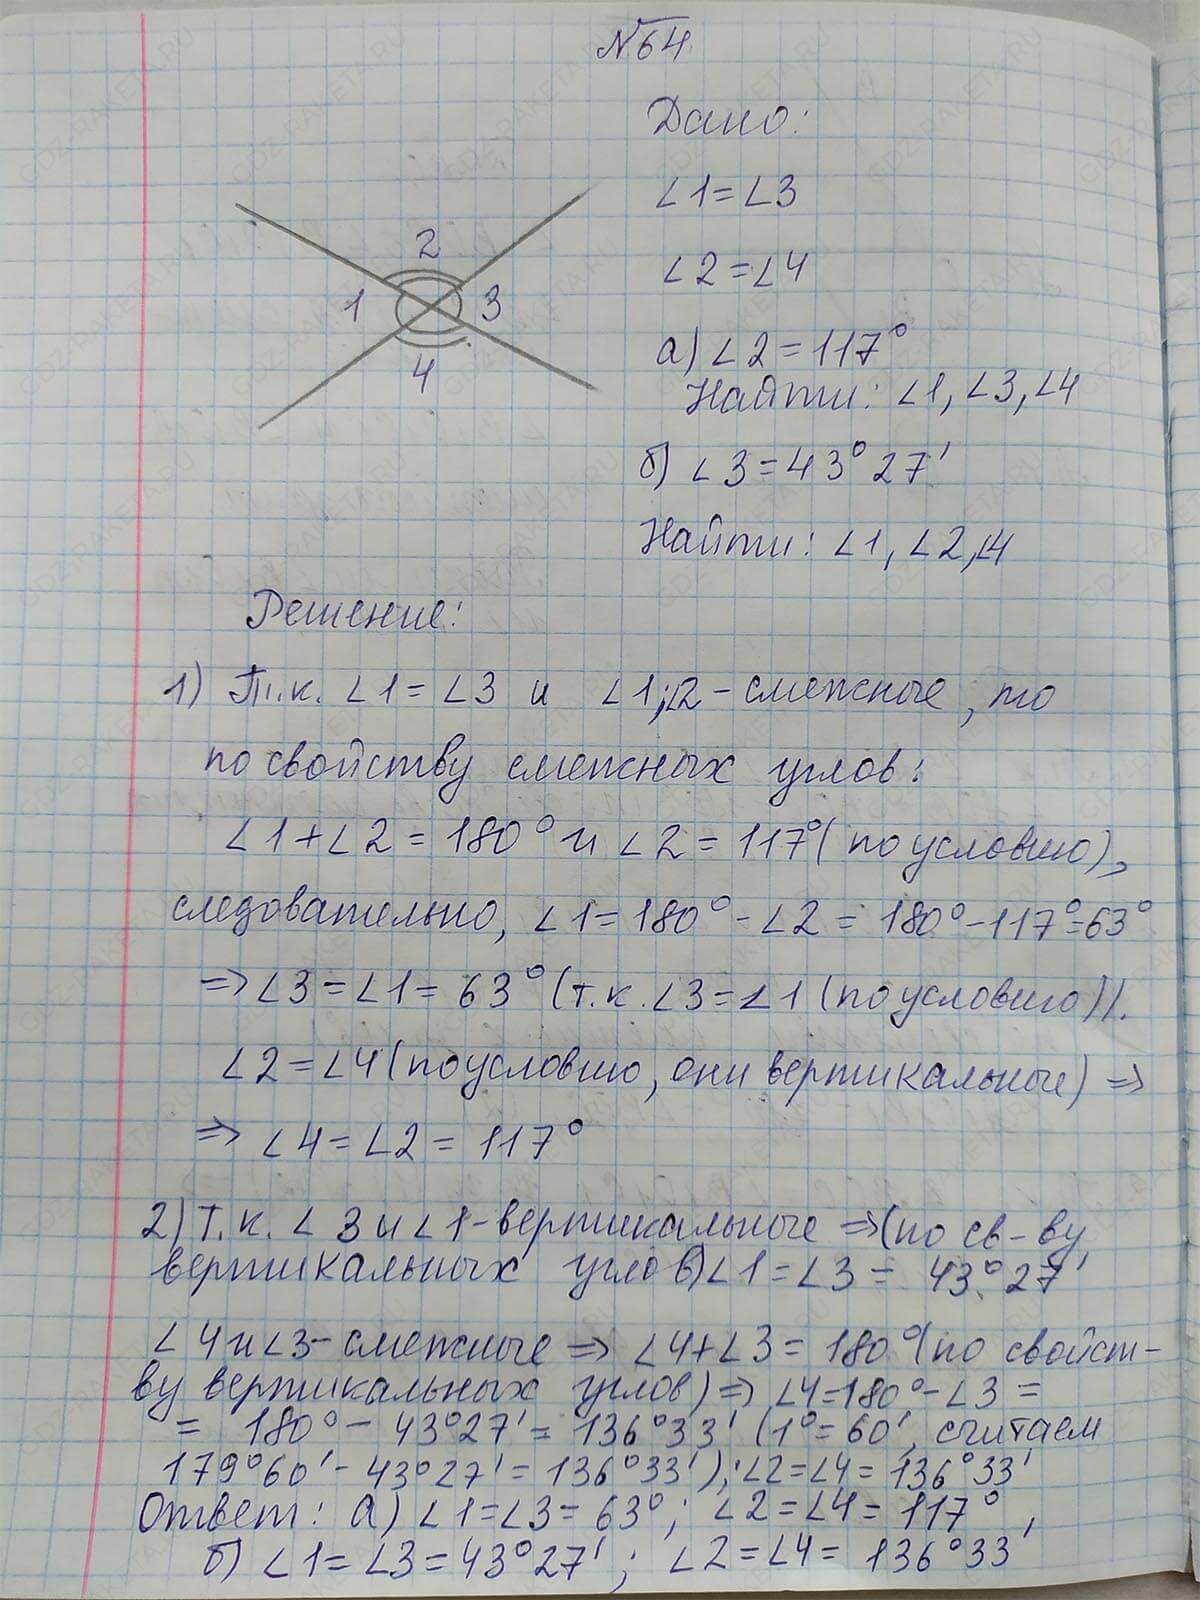 №64
Дано:
∠1=∠3
∠2=∠4
2
1 3
4
а) ∠2=117°
Найти: ∠1, ∠3, ∠4
б) ∠3=43°27'
Найти: ∠1, ∠2, ∠4
Решение:
1) Т.к. ∠1=∠3 и ∠1;∠2-смежные, то
по свойству смежных углов:
∠1+∠2=180° и ∠2=117° (по условию),
следовательно, ∠1=180°-∠2=180°-117°=63°
=> ∠3=∠1=63° (т.к. ∠3=∠1 (по условию)).
∠2=∠4 (по условию, они вертикальные) =>
=> ∠4=∠2=117°
2) Т.к. ∠3 и ∠1-вертикальные => (по св-ву
вертикальных углов) ∠1=∠3=43°27'
∠4 и ∠3-смежные => ∠4+∠3=180° (по свойст-
ву вертикальных углов) => ∠4=180°-∠3=
= 180°-43°27'=136°33' (1°=60', считаем
179°60'-43°27'=136°33'); ∠2=∠4=136°33'
Ответ: а) ∠1=∠3=63°; ∠2=∠4=117°,
б) ∠1=∠3=43°27'; ∠2=∠4=136°33'
GDZ-RAKETA.RU